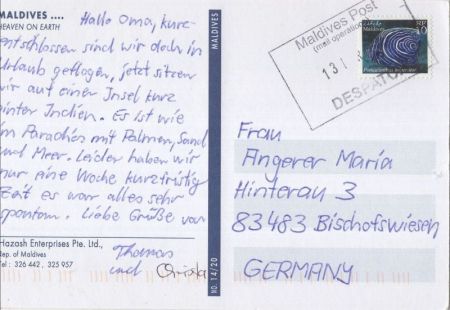 MALDIVES ....
HEAVEN ON EARTH
Hallo Oma, kurz-
entschlossen sind wir doch in
Urlaub geflogen, jetzt sitzen
wir auf einer Insel kurz
hinter Indien. Es ist wie
im Paradies mit Palmen, Sand
und Meer. Leider haben wir
nur eine Woche kurzfristig
Zeit es war alles sehr
spontan. Liebe Grüße von
Thomas
und Christa
Hazosh Enterprises Pte. Ltd.,
Rep. of Maldives
Tel : 326 442 , 325 957
MALDIVES
NO. 14/20
Maldives Post
(mail operation
13
DESPAT
Maldives
10
Frau
Angerer Maria
Hinterau 3
83483 Bischofswiesen
GERMANY